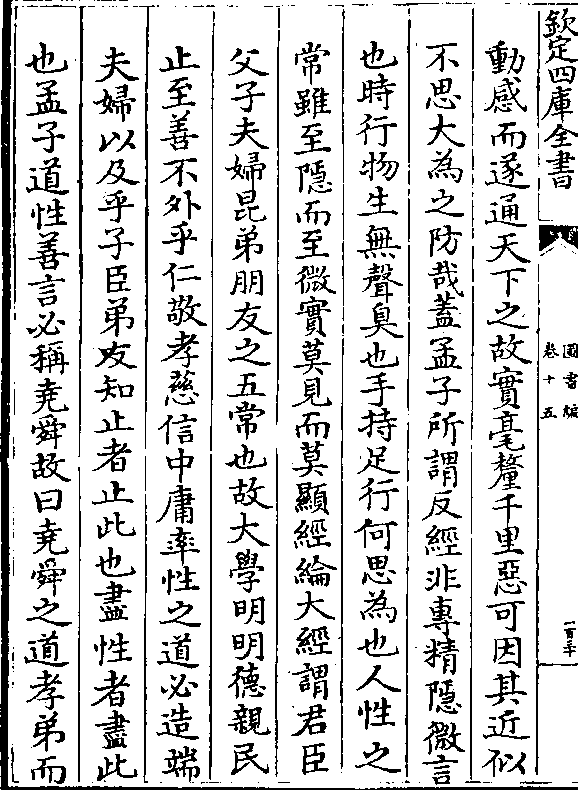 欽定四庫全書
圖書編
卷十五
一百三十
動感而遂通天下之故實毫釐千里惡可因其近似
不思大為之防哉蓋孟子所謂反經非專精隱微言
也時行物生無聲臭也手持足行何思為也人性之
常雖至隱而至微實莫見而莫顯經綸大經謂君臣
父子夫婦昆弟朋友之五常也故大學明明德親民
止至善不外乎仁敬孝慈信中庸率性之道必造端
夫婦以及乎子臣弟友知止者止此也盡性者盡此
也孟子道性善言必稱堯舜故曰堯舜之道孝弟而